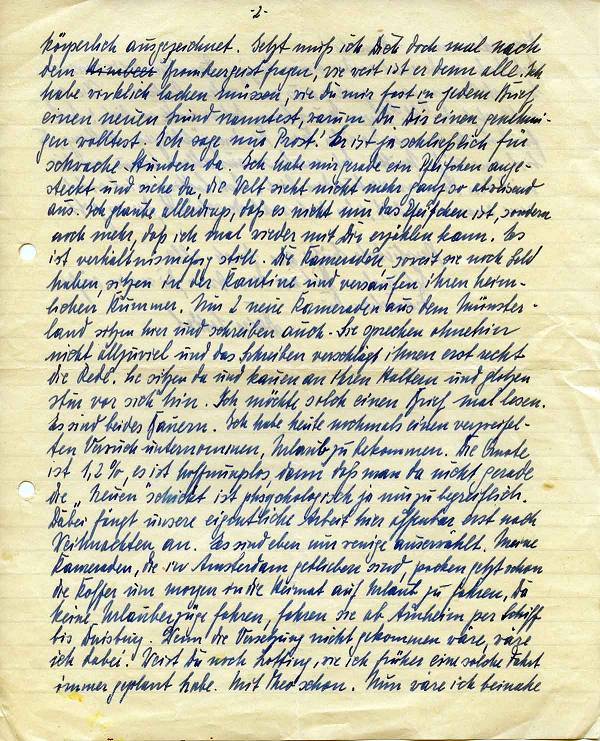 -2-
körperlich ausgezeichnet. Jetzt muß ich Dich doch mal nach
dem Himbeer Brombeergeist fragen, wie weit ist er denn alle. Ich
habe wirklich lachen müssen, wie Du mir fast in jedem Brief
einen neuen Grund nanntest, warum Du Dir einen genehmi-
gen wolltest. Ich sage nur Prost! Er ist ja schließlich für
schwache Stunden da. Ich habe mir gerade ein Pfeifchen ange-
steckt und siehe da, die Welt sieht nicht mehr ganz so abweisend
aus. Ich glaube allerdings, daß es nicht nur das Pfeifchen ist, sondern
noch mehr, daß ich mal wieder mit Dir erzählen kann. Es
ist verhältnismäßig still. Die Kameraden, soweit sie noch Geld
haben, sitzen in der Kantine und versaufen ihren heim-
lichen Kummer. Nur 2 neue Kameraden aus dem Münster-
land sitzen hier und schreiben auch. Sie sprechen ohnehin
nicht allzuviel und das Schreiben verschlägt ihnen erst recht
die Rede. Sie sitzen da und kauen an ihren Haltern und glotzen
stur vor sich hin. Ich möchte solch einen Brief mal lesen.
Es sind beides Bauern. Ich habe heute nochmals einen verzweifel-
ten Versuch unternommen, Urlaub zu bekommen. Die Quote
ist 1,2%, es ist hoffnungslos denn daß man da nicht gerade
die „Neuen“ schickt ist phsychologisch ja nur zu begreiflich.
Dabei fängt unsere eigentliche Arbeit hier offenbar erst nach
Weihnachten an. Es sind eben nur wenige auserwählt. Meine
Kameraden, die in Amsterdam geblieben sind, packen jetzt schon
die Koffer um morgen in die Heimat auf Urlaub zu fahren. Da
keine Urlauberzüge fahren, fahren sie ab Arnheim per Schiff
bis Duisburg. Wenn die Versetzung nicht gekommen wäre, wäre
ich dabei. Weist Du noch, wie ich früher eine solche Fahrt
immer geplant habe. Mit Theo schon. Nun wäre ich beinahe